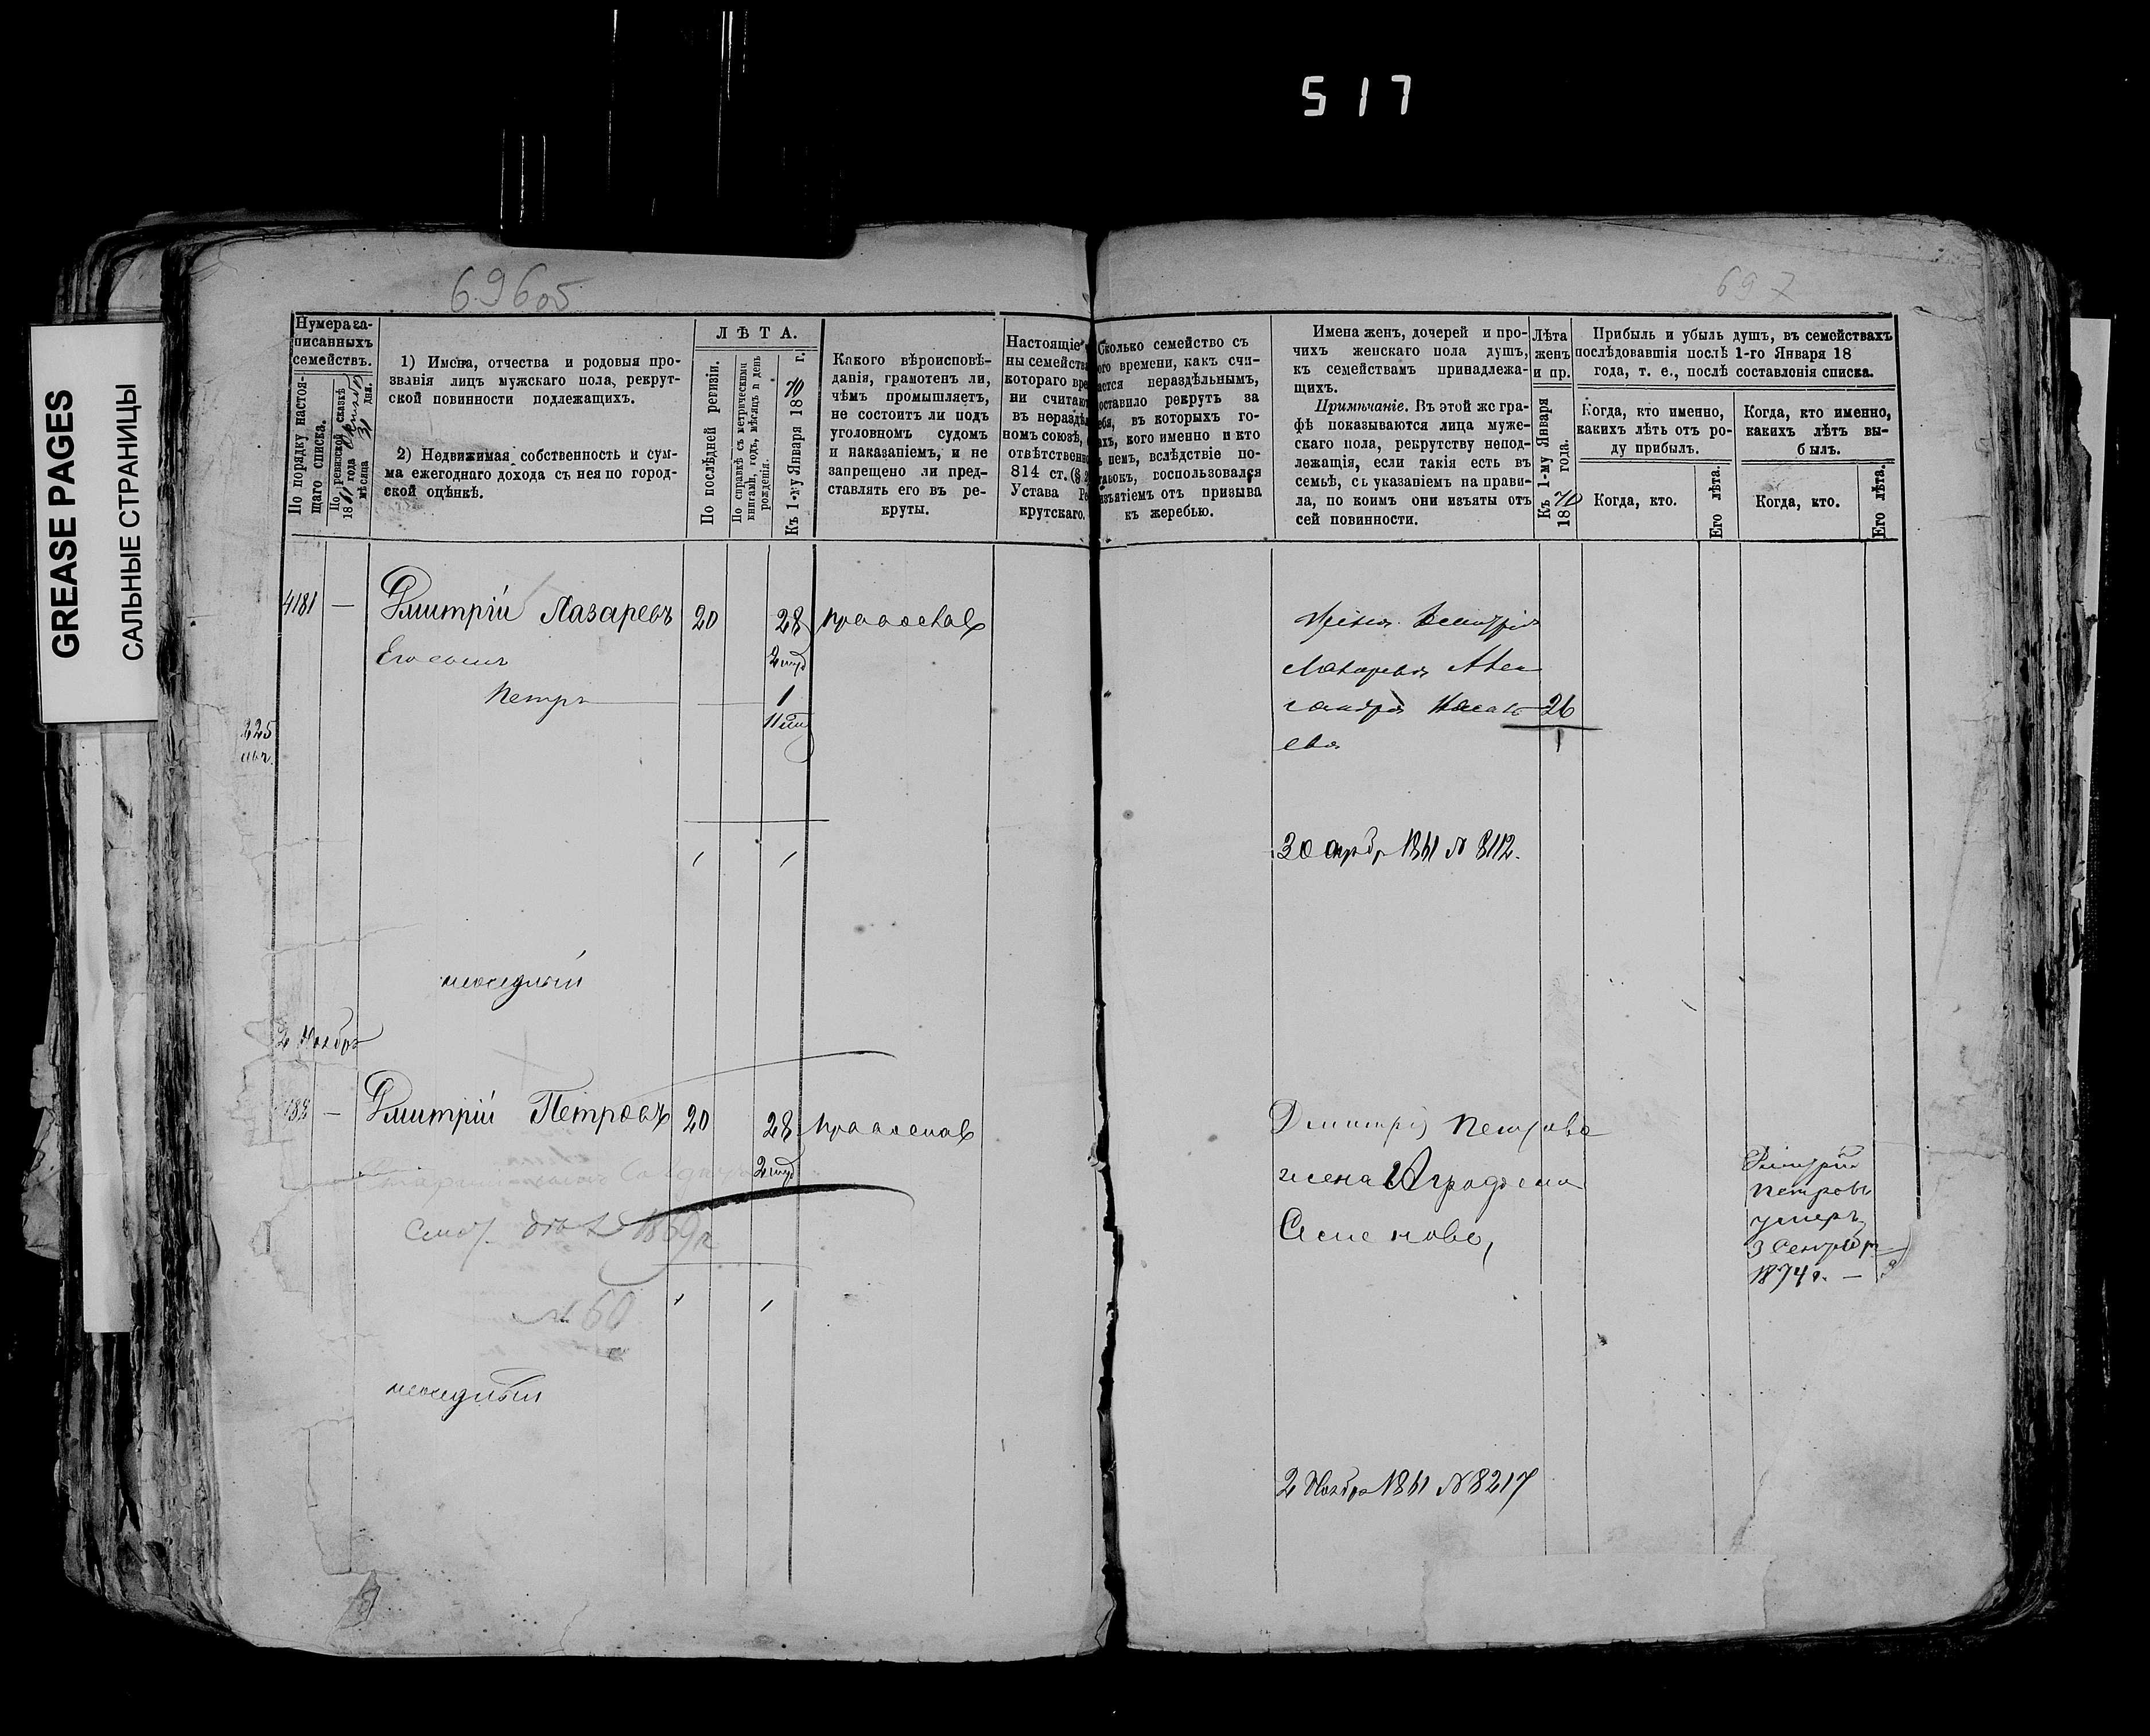 517
GREASE PAGES
САЛЬНЫЕ СТРАНИЦЫ
696об
697
Нумера за-
писанныхъ
семействъ.
По порядку настоя-
щаго списка.
По ревизской сказкѣ
18 года
мѣсяца 31 дня.
1) Имена, отчества и родовыя про-
званія лицъ мужскаго пола, рекрут-
ской повинности подлежащихъ.
2) Недвижимая собственность и сум-
ма ежегоднаго дохода съ нея по город-
ской оцѣнкѣ.
ЛѢТА.
По послѣдней ревизіи.
По справкѣ съ метрическими
книгами, годъ, мѣсяцъ и день
рожденія.
Къ 1-му Января 1870 г.
Какого вѣроисповѣ-
данія, грамотенъ ли,
чѣмъ промышляетъ,
не состоитъ ли подъ
уголовномъ судомъ
и наказаніемъ, и не
запрещено ли пред-
ставлять его въ ре-
круты.
Настоящіе
ны семейства
котораго вре
ни считаю
въ нераздѣл
номъ союзѣ,
отвѣтственно
814 ст. (§
Устава Ре
крутскаго.
Сколько семейство съ
ого времени, какъ счи-
ается нераздѣльнымъ,
оставило рекрутъ за
ебя, въ которыхъ го-
ахъ, кого именно и кто
ъ немъ, вслѣдствіе по-
тавокъ, воспользовался
изъятіемъ отъ призыва
къ жеребью.
Имена женъ, дочерей и про-
чихъ женскаго пола душъ,
къ семействамъ принадлежа-
щихъ.
Примѣчаніе. Въ этой же гра-
фѣ показываются лица муже-
скаго пола, рекрутству непод-
лежащія, если такія есть въ
семьѣ, съ указаніемъ на прави-
ла, по коимъ они изъяты отъ
сей повинности.
Лѣта
женъ
и пр.
Къ 1-му Января
1870 года.
Прибыль и убыль душъ, въ семействахъ
послѣдовавшія послѣ 1-го Января 18
года, т. е., послѣ составленія списка.
Когда, кто именно,
какихъ лѣтъ отъ ро-
ду прибылъ.
Когда, кто именно,
какихъ лѣтъ вы-
былъ.
Когда, кто.
Его лѣта.
Когда, кто.
Его лѣта.
4181 — Дмитрій Лазаревъ 20 28 православ
Его сынъ
Петръ 1
225
Жена Дмитрія
Лазарева Алек
сандра Исак 26
ева 1
1 1
30 1861 № 8112.
2 Ноября
183 — Дмитрій Петровъ 20 28 православ
1869 г
№ 60
1 1
Дмитрія Петрова
жена Аграфена
Семенова,
Дмитрій
Петровъ
умеръ
3 Сентября
1874 г. —
2 Ноября 1861 № 8217